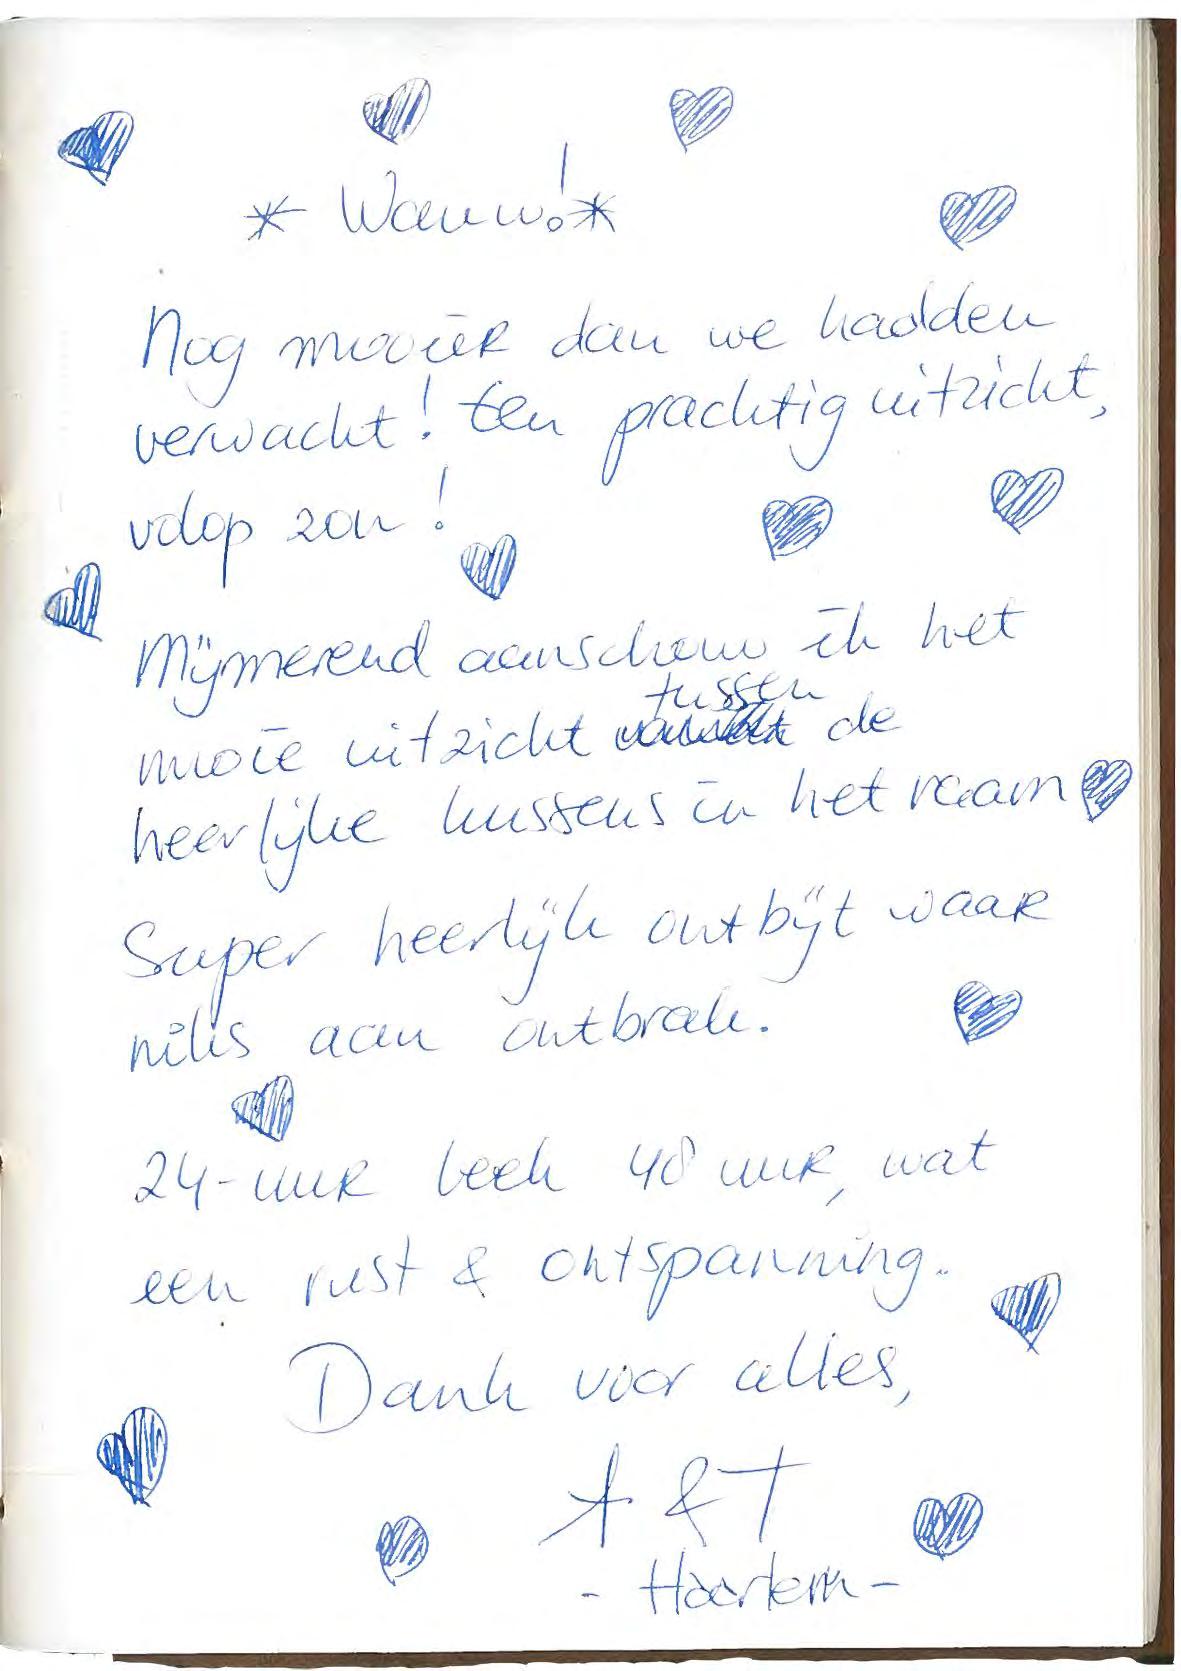 * Wauw! *
Nog mooier dan we hadden
verwacht! Een prachtig uitzicht,
volop zon!
Mijmerend aanschouw ik het
mooie uitzicht tussen de
heerlijke kussens in het raam
Super heerlijk ontbijt waar
niks aan ontbrak.
24-uur leek 48 uur, wat
een rust & ontspanning.
Dank voor alles,
A & T
- Haarlem -